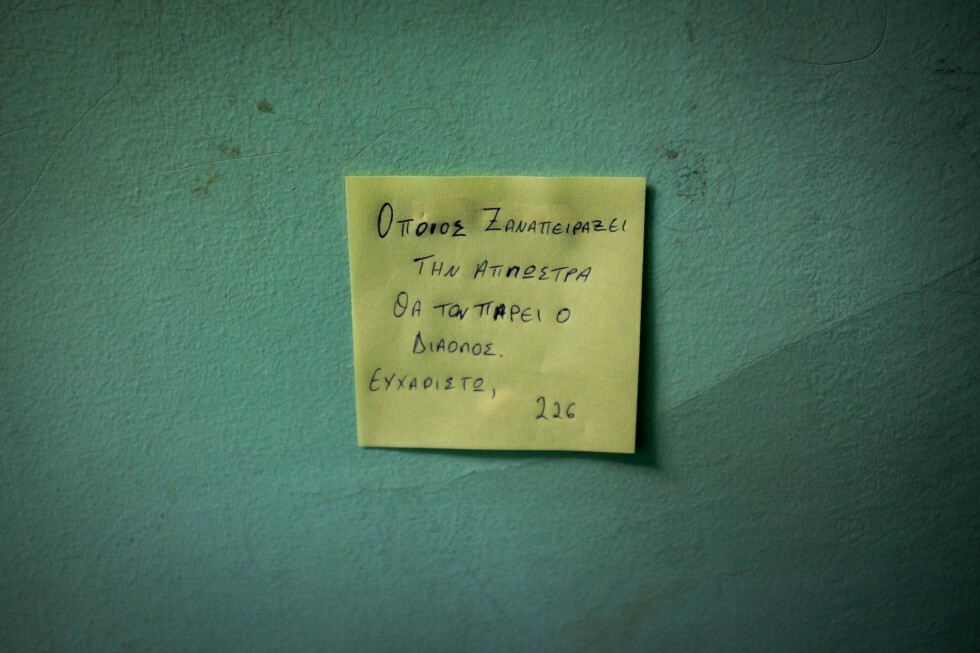 Οποιος ΞΑΝΑΠΕΙΡΑΞΕΙ
ΤΗΝ ΑΠΛΩΣΤΡΑ
ΘΑ ΤΟΝ ΠΑΡΕΙ Ο
ΔΙΑΟΛΟΣ.
ΕΥΧΑΡΙΣΤΩ,
226